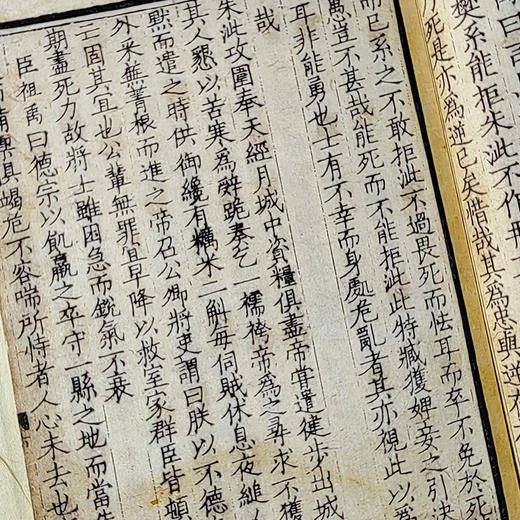 樊系能拒朱泚不作冊
死是亦為逆已矣惜哉其為忠與逆
而已系之不敢拒泚不過畏死而怯耳而卒不免於死
愚豈不甚哉能死而不能拒泚此特臧獲婢妾之引決
耳非能勇也士有不幸而身處危亂者其亦視此以為
哉
朱泚攻圍奉天經月城中資糧俱盡帝嘗遣健步出城
其人懇以苦寒為辭跪奏乞一襦袴帝為之尋求不獲
黙而遣之時供御纔有糲米二斛每伺賊休息夜縋人
外采蕪菁根而進之帝召公卿將吏謂曰朕以不德
亡固其宜也公輩無罪宜早降以救室家群臣皆頓
期盡死力故將士雖困急而銳氣不衰
臣祖禹曰德宗以飢羸之卒守一縣之地而當
俱竭危不容喘所恃者人心未去也